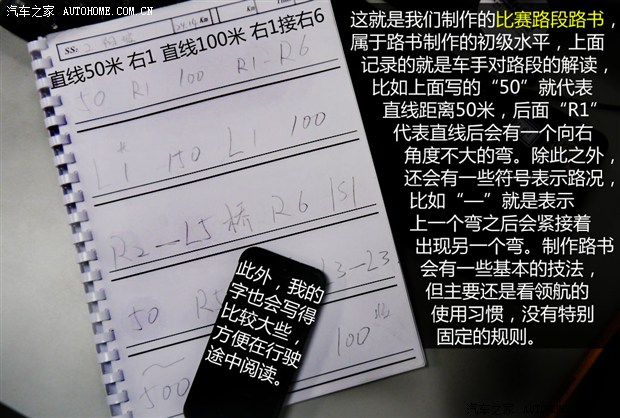 汽车之家 AUTOHOME.COM.CN
SS:
Km
Km
直线50米 右1 直线100米 右1接右6
50 R1 100 R1-R6
L1 150 L1 100
R2—L5 桥 R6 151
50 R5
L3-L3
100
500
这就是我们制作的比赛路段路书，
属于路书制作的初级水平，上面
记录的就是车手对路段的解读，
比如上面写的“50”就代表
直线距离50米，后面“R1”
代表直线后会有一个向右
角度不大的弯。除此之外，
还会有一些符号表示路况，
比如“—”就是表示
上一个弯之后会紧接着
出现另一个弯。制作路书
会有一些基本的技法，
但主要还是看领航的
使用习惯，没有特别
固定的规则。
此外，我的
字也会写得
比较大些，
方便在行驶
途中阅读。